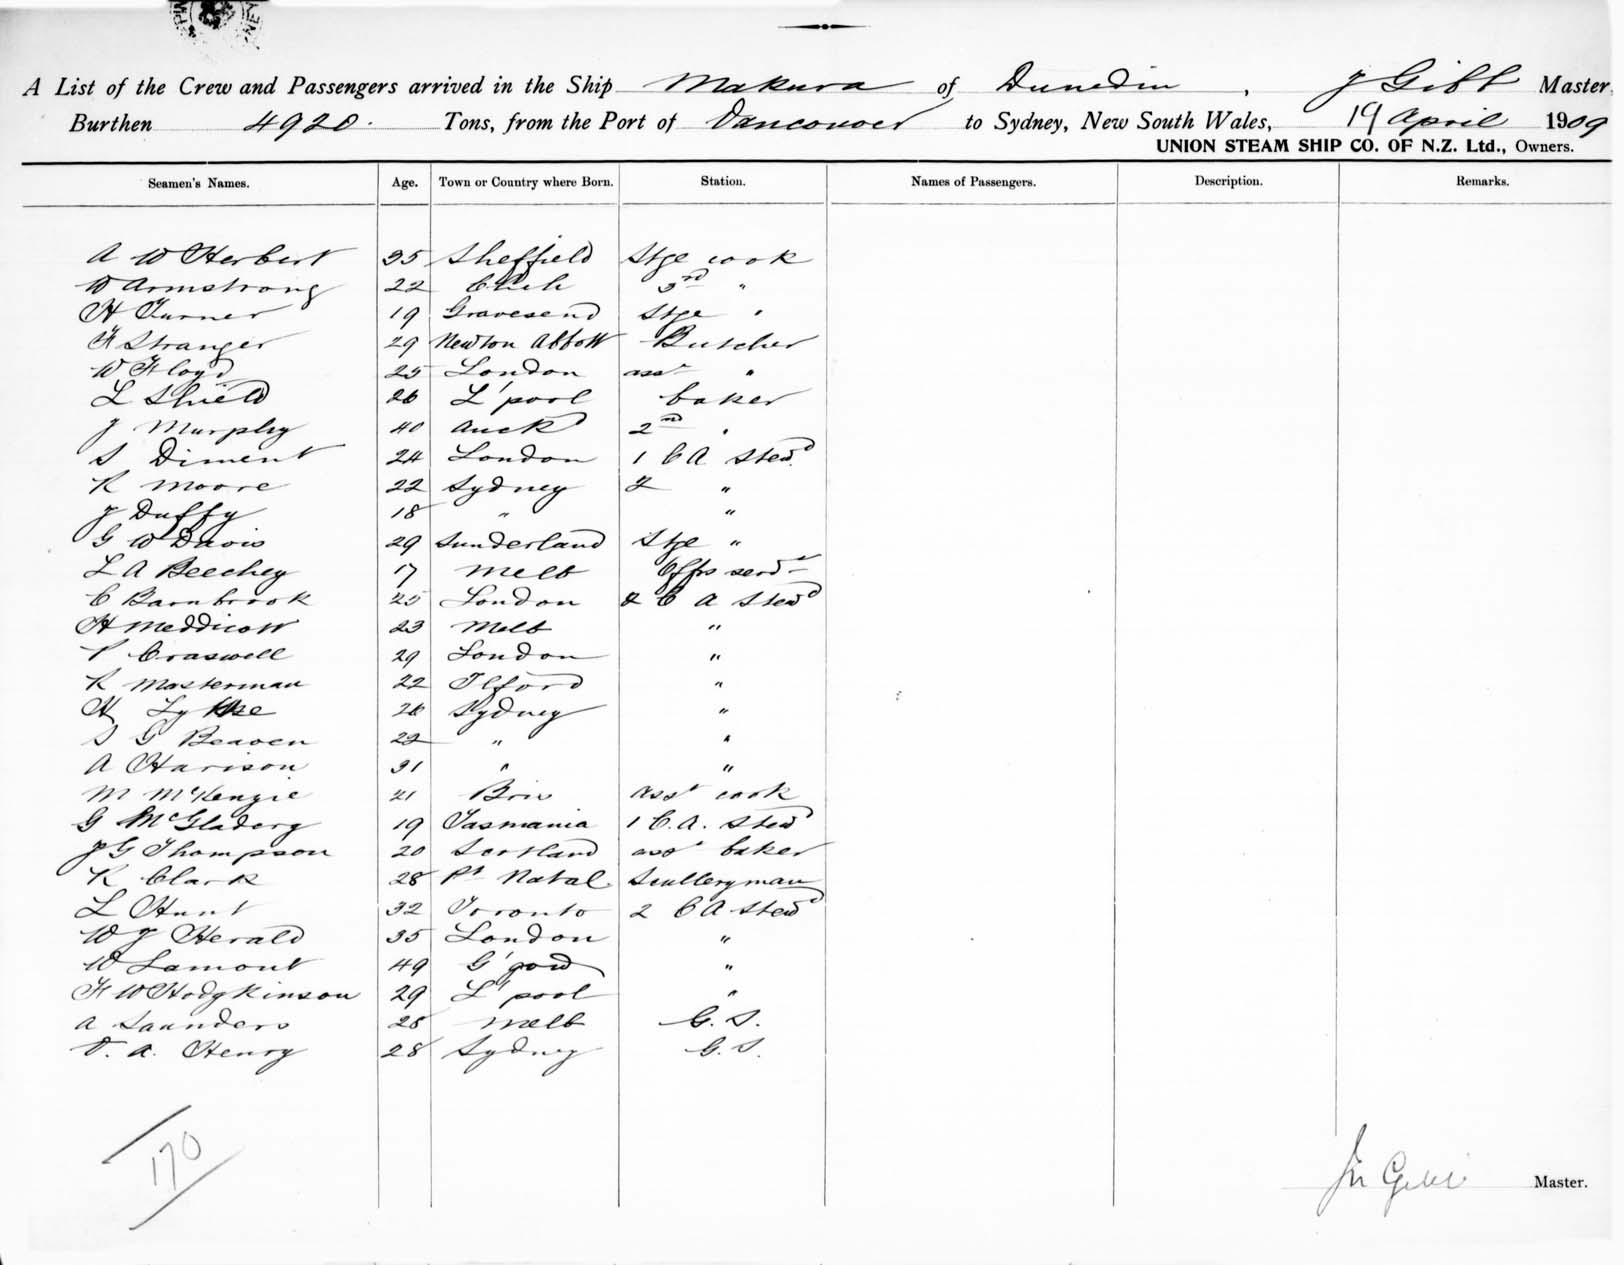 A List of the Crew and Passengers arrived in the Ship Makura of Dunedin, J Gibb Master
Burthen 4920 Tons, from the Port of Vancouver to Sydney, New South Wales, 19 April 1909
UNION STEAM SHIP CO. OF N.Z. Ltd., Owners.
Seamen's Names. Age. Town or Country where Born. Station. Names of Passengers. Description. Remarks.
A W Herbert 35 Sheffield Stge cook
W Armstrong 22 Chch 3rd "
H Turner 19 Gravesend Stge "
F Stranger 29 Newton Abbott Butcher
W Floyd 25 London asst "
L Shield 26 L'pool baker
J Murphy 40 Auckd 2nd "
S Diment 24 London 1 C A Stewd
R Moore 22 Sydney 2 "
J Duffy 18 " "
G W Davis 29 Sunderland Stge "
L A Beechey 17 Melb Offrs servt
C Barnbrook 25 London 2 C A Stewd
H Meddicott 23 Melb "
P Craswell 29 London "
R Masterman 22 Ilford "
H 26 Sydney "
S G Beaven 22 " "
A Harison 31 " "
M McKenzie 21 Bris Asst cook
G McGladery 19 Tasmania 1 C. A. Stewd
J G Thompson 20 Scotland asst baker
R Clark 28 Pt Natal Sculleryman
L Hunt 32 Toronto 2 C A Stewd
W J Herald 35 London "
W Lamont 49 G'gow "
F W Hodgkinson 29 L'pool "
A Saunders 28 Melb G. S.
A. Henry 28 Sydney G. S.
170
Jn Gibb Master.